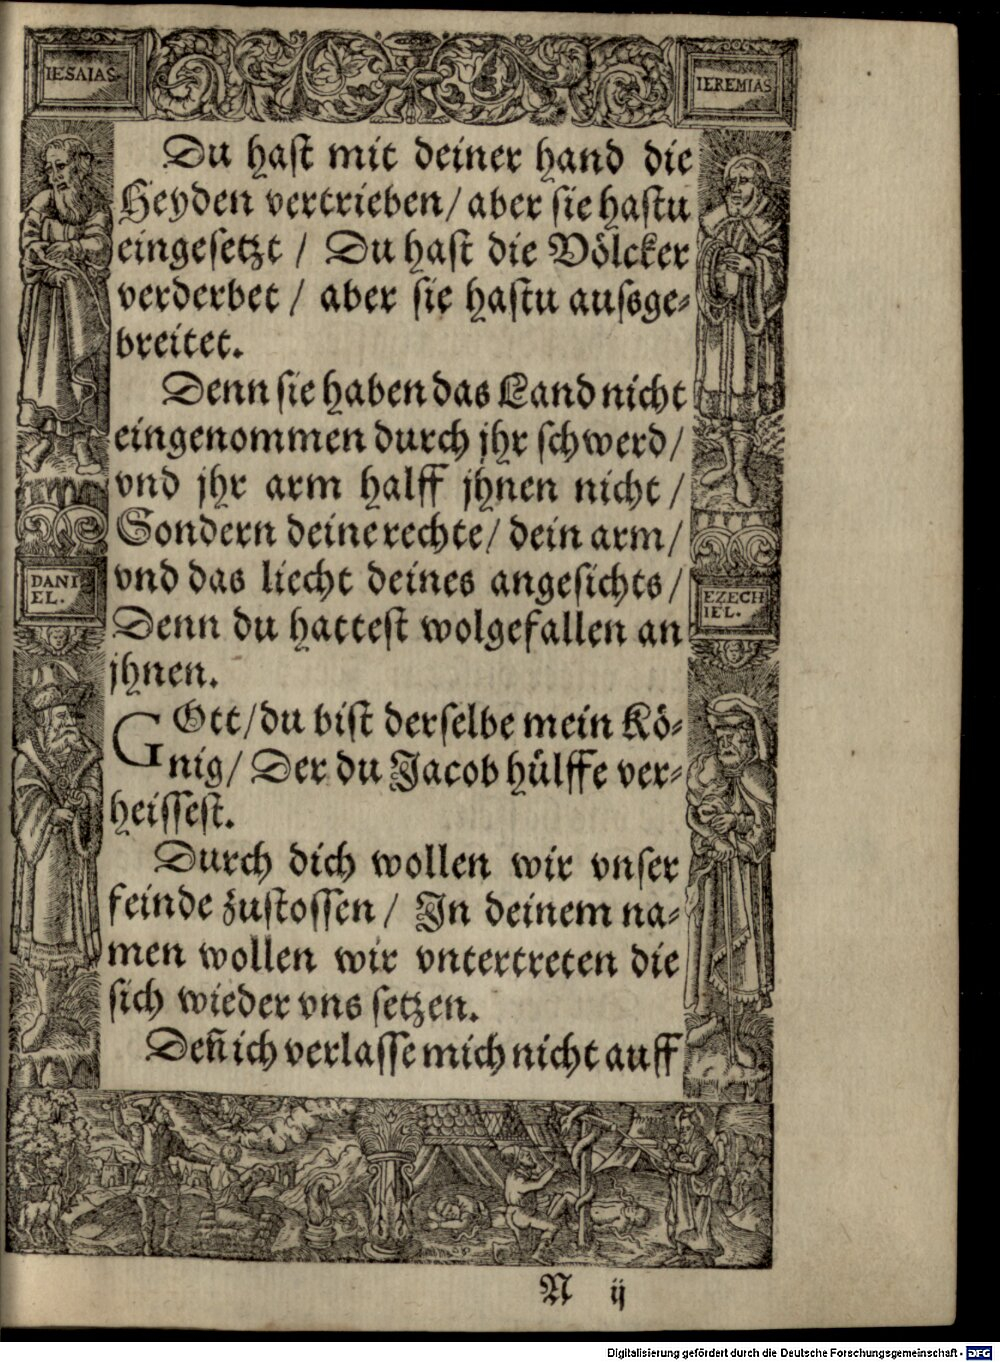 IESAIAS.
IEREMIAS
Du hast mit deiner hand die
Heyden vertrieben/ aber sie hastu
eingesetzt / Du hast die Völcker
verderbet / aber sie hastu aussge-
breitet.
Denn sie haben das Land nicht
eingenommen durch jhr schwerd/
vnd jhr arm halff jhnen nicht /
Sondern deine rechte/ dein arm/
vnd das liecht deines angesichts/
Denn du hattest wolgefallen an
jhnen.
GOtt/du bist derselbe mein Kö-
nig/ Der du Jacob hülffe ver-
heissest.
Durch dich wollen wir vnser
feinde zustossen/ In deinem na-
men wollen wir vntertreten die
sich wieder vns setzen.
Deñ ich verlasse mich nicht auff
DANI
EL.
EZECH
IEL.
N ij
Digitalisierung gefördert durch die Deutsche Forschungsgemeinschaft - DFG